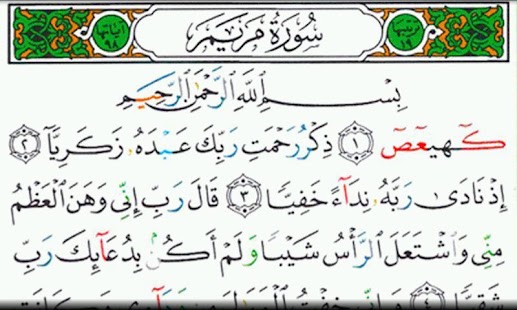 ترتيبها ١٩ سُورَةُ مَرْيَمَ آياتها ٩٨
بِسْمِ ٱللَّهِ ٱلرَّحْمَٰنِ ٱلرَّحِيمِ
كٓهيعٓصٓ ١ ذِكْرُ رَحْمَتِ رَبِّكَ عَبْدَهُۥ زَكَرِيَّآ ٢
إِذْ نَادَىٰ رَبَّهُۥ نِدَآءً خَفِيًّا ٣ قَالَ رَبِّ إِنِّى وَهَنَ ٱلْعَظْمُ
مِنِّى وَٱشْتَعَلَ ٱلرَّأْسُ شَيْبًا وَلَمْ أَكُنۢ بِدُعَآئِكَ رَبِّ
شَقِيًّا ٤ وَإِنِّى خِفْتُ